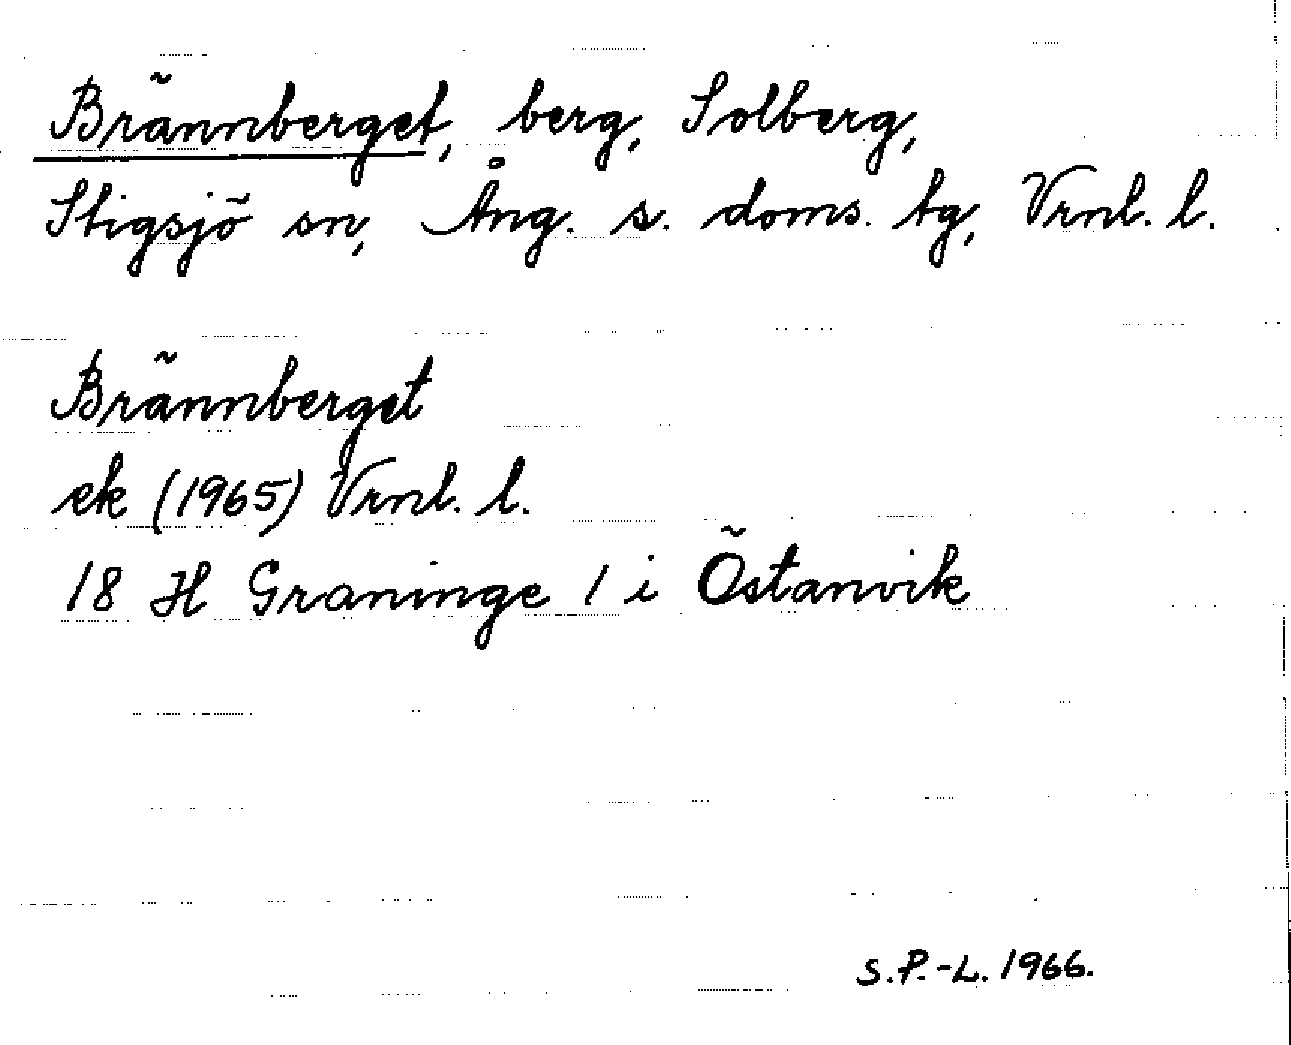 Brännberget, berg, Solberg,
Stigsjö sn, Ång. s. doms. tg, Vrnl. l.
Brännberget
ek (1965) Vrnl. l.
18 H Graninge 1 i Östanvik
S.P.-L. 1966.